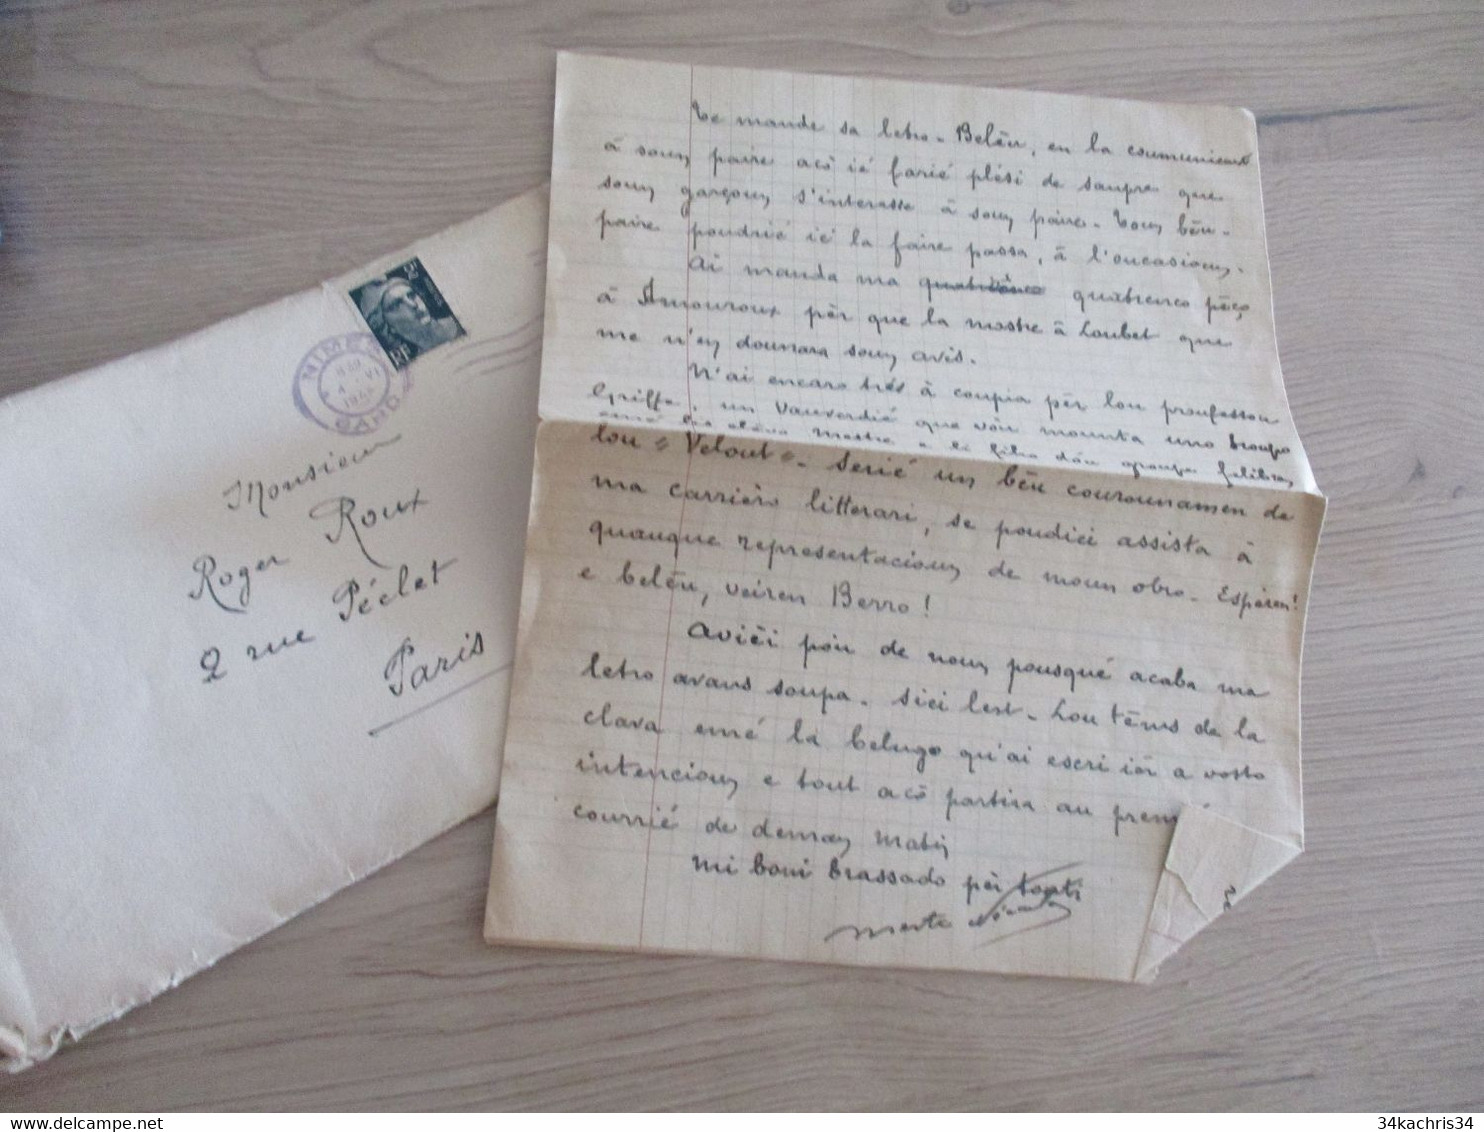 NIMES
GARD
RF
Monsieur
Roger Roux
2 rue Péclet
Paris
Te mande sa letro. Belèu, en la coumunicant
à soun paire acò ié farié plési de saupre que
soun garçoun s'interesse à soun paire. Toun bèu-
paire poudrié ié la faire passa, à l'oucasioun.
Ai manda ma quatrenco pèço
à Amouroux pèr que la mostre à Loubet que
me n'en dounara soun avis.
N'ai encaro tres à coupia pèr lou proufessour
Griffe, un Vauverdié que vòu mounta uno troupo
emé lis elèvo mestre e li felibre dóu groupe felibren
lou "Velout". Serié un bèu courounamen de
ma carriero litterari, se poudiei assista à
quauque representacioun de moun obro. Esperen!
e belèu, veiren Berro!
Aviéi pòu de noun pousqué acaba ma
letro avans soupa. Siei lest. Lou tèms de la
clava emé la belugo qu'ai escri ièr a vosto
intencioun e tout acò partira au premié
courrié de deman matin
Mi boui brassado pèr touti
34kachris34